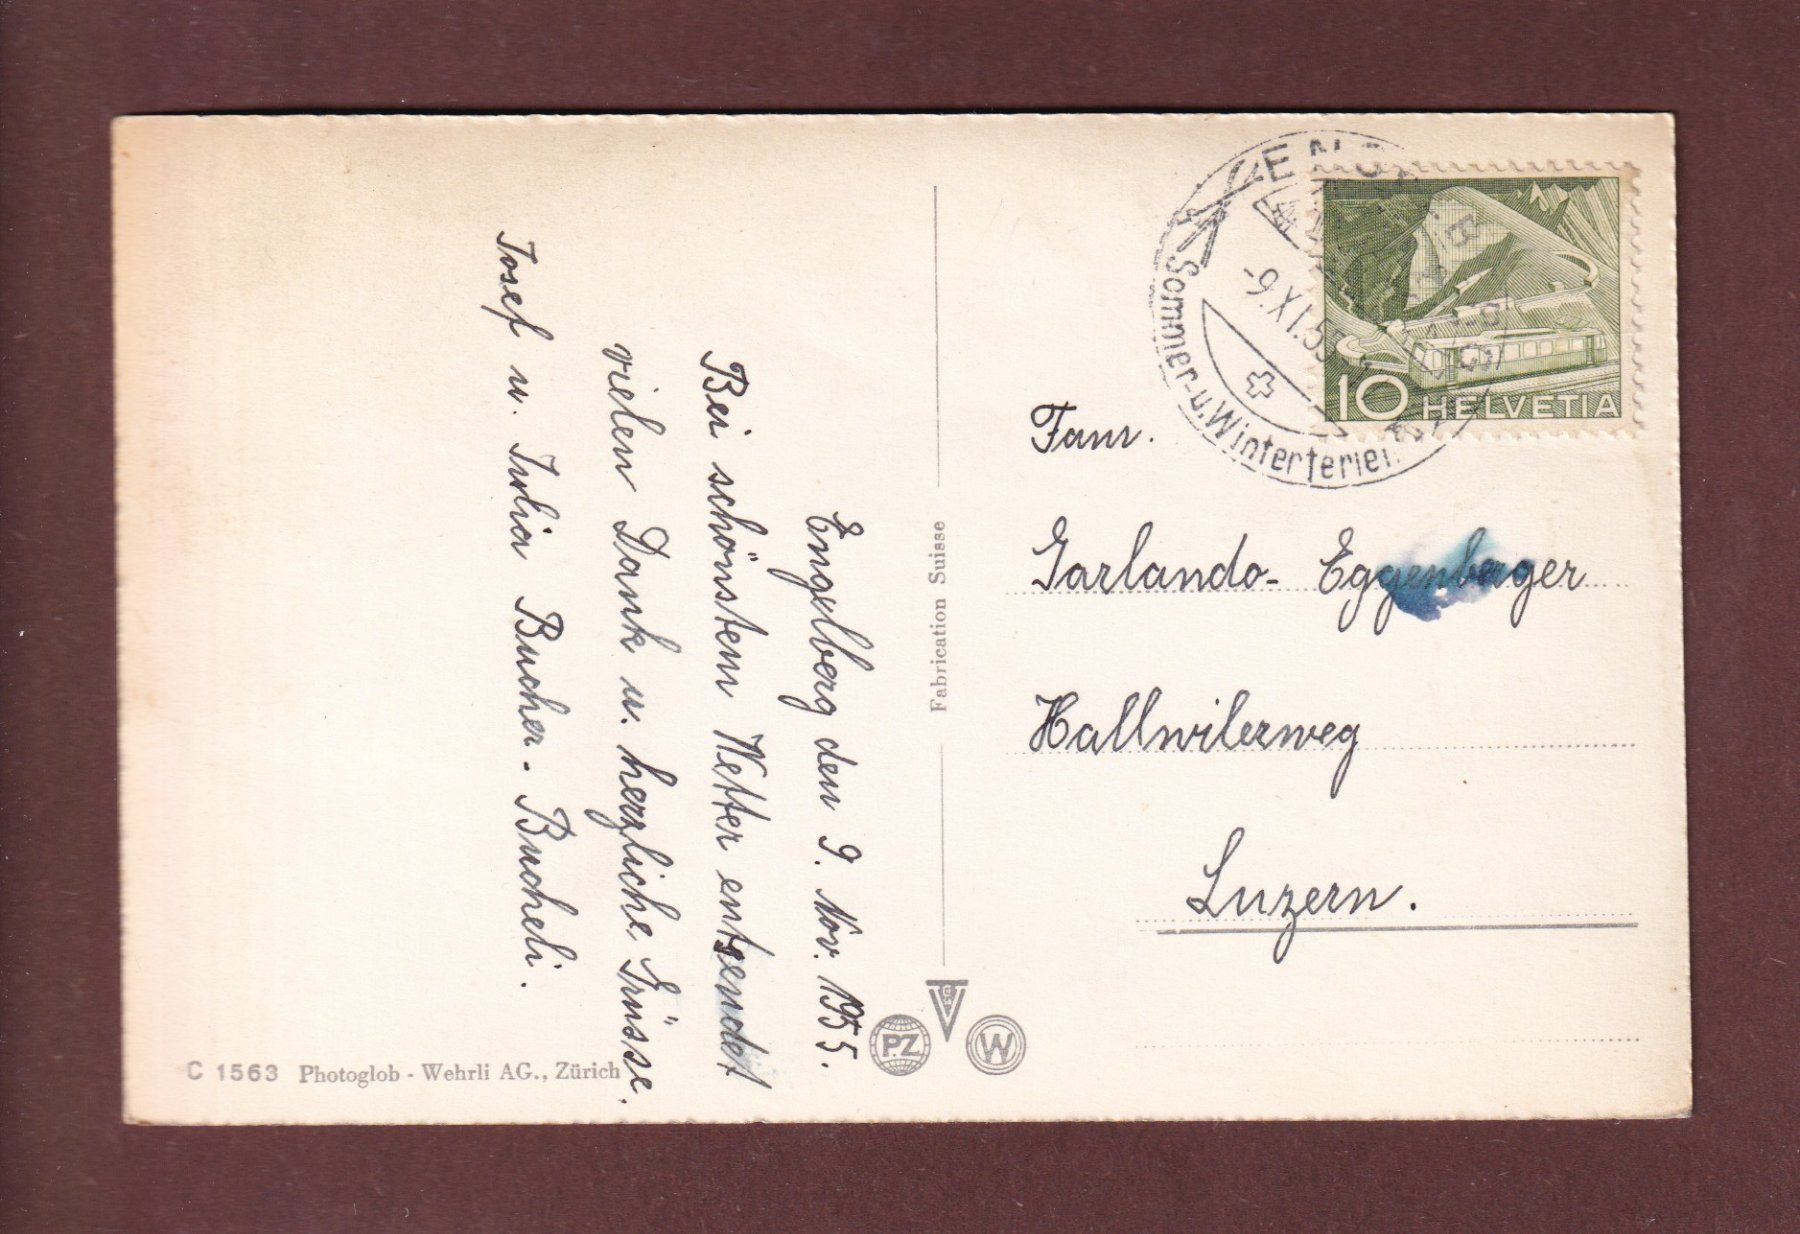 Engelberg den 9. Nov. 1955.
Bei schönstem Wetter entsendet
vielen Dank u. herzliche Grüsse.
Josef u. Julia Bucher-Bucheli.
C 1563 Photoglob - Wehrli AG., Zürich
Fabrication Suisse
PZ
W
-9.XI.55
Sommer- u. Winterferien
10 HELVETIA
Fam.
Garlando- Eggenberger
Hallwilerweg
Luzern.